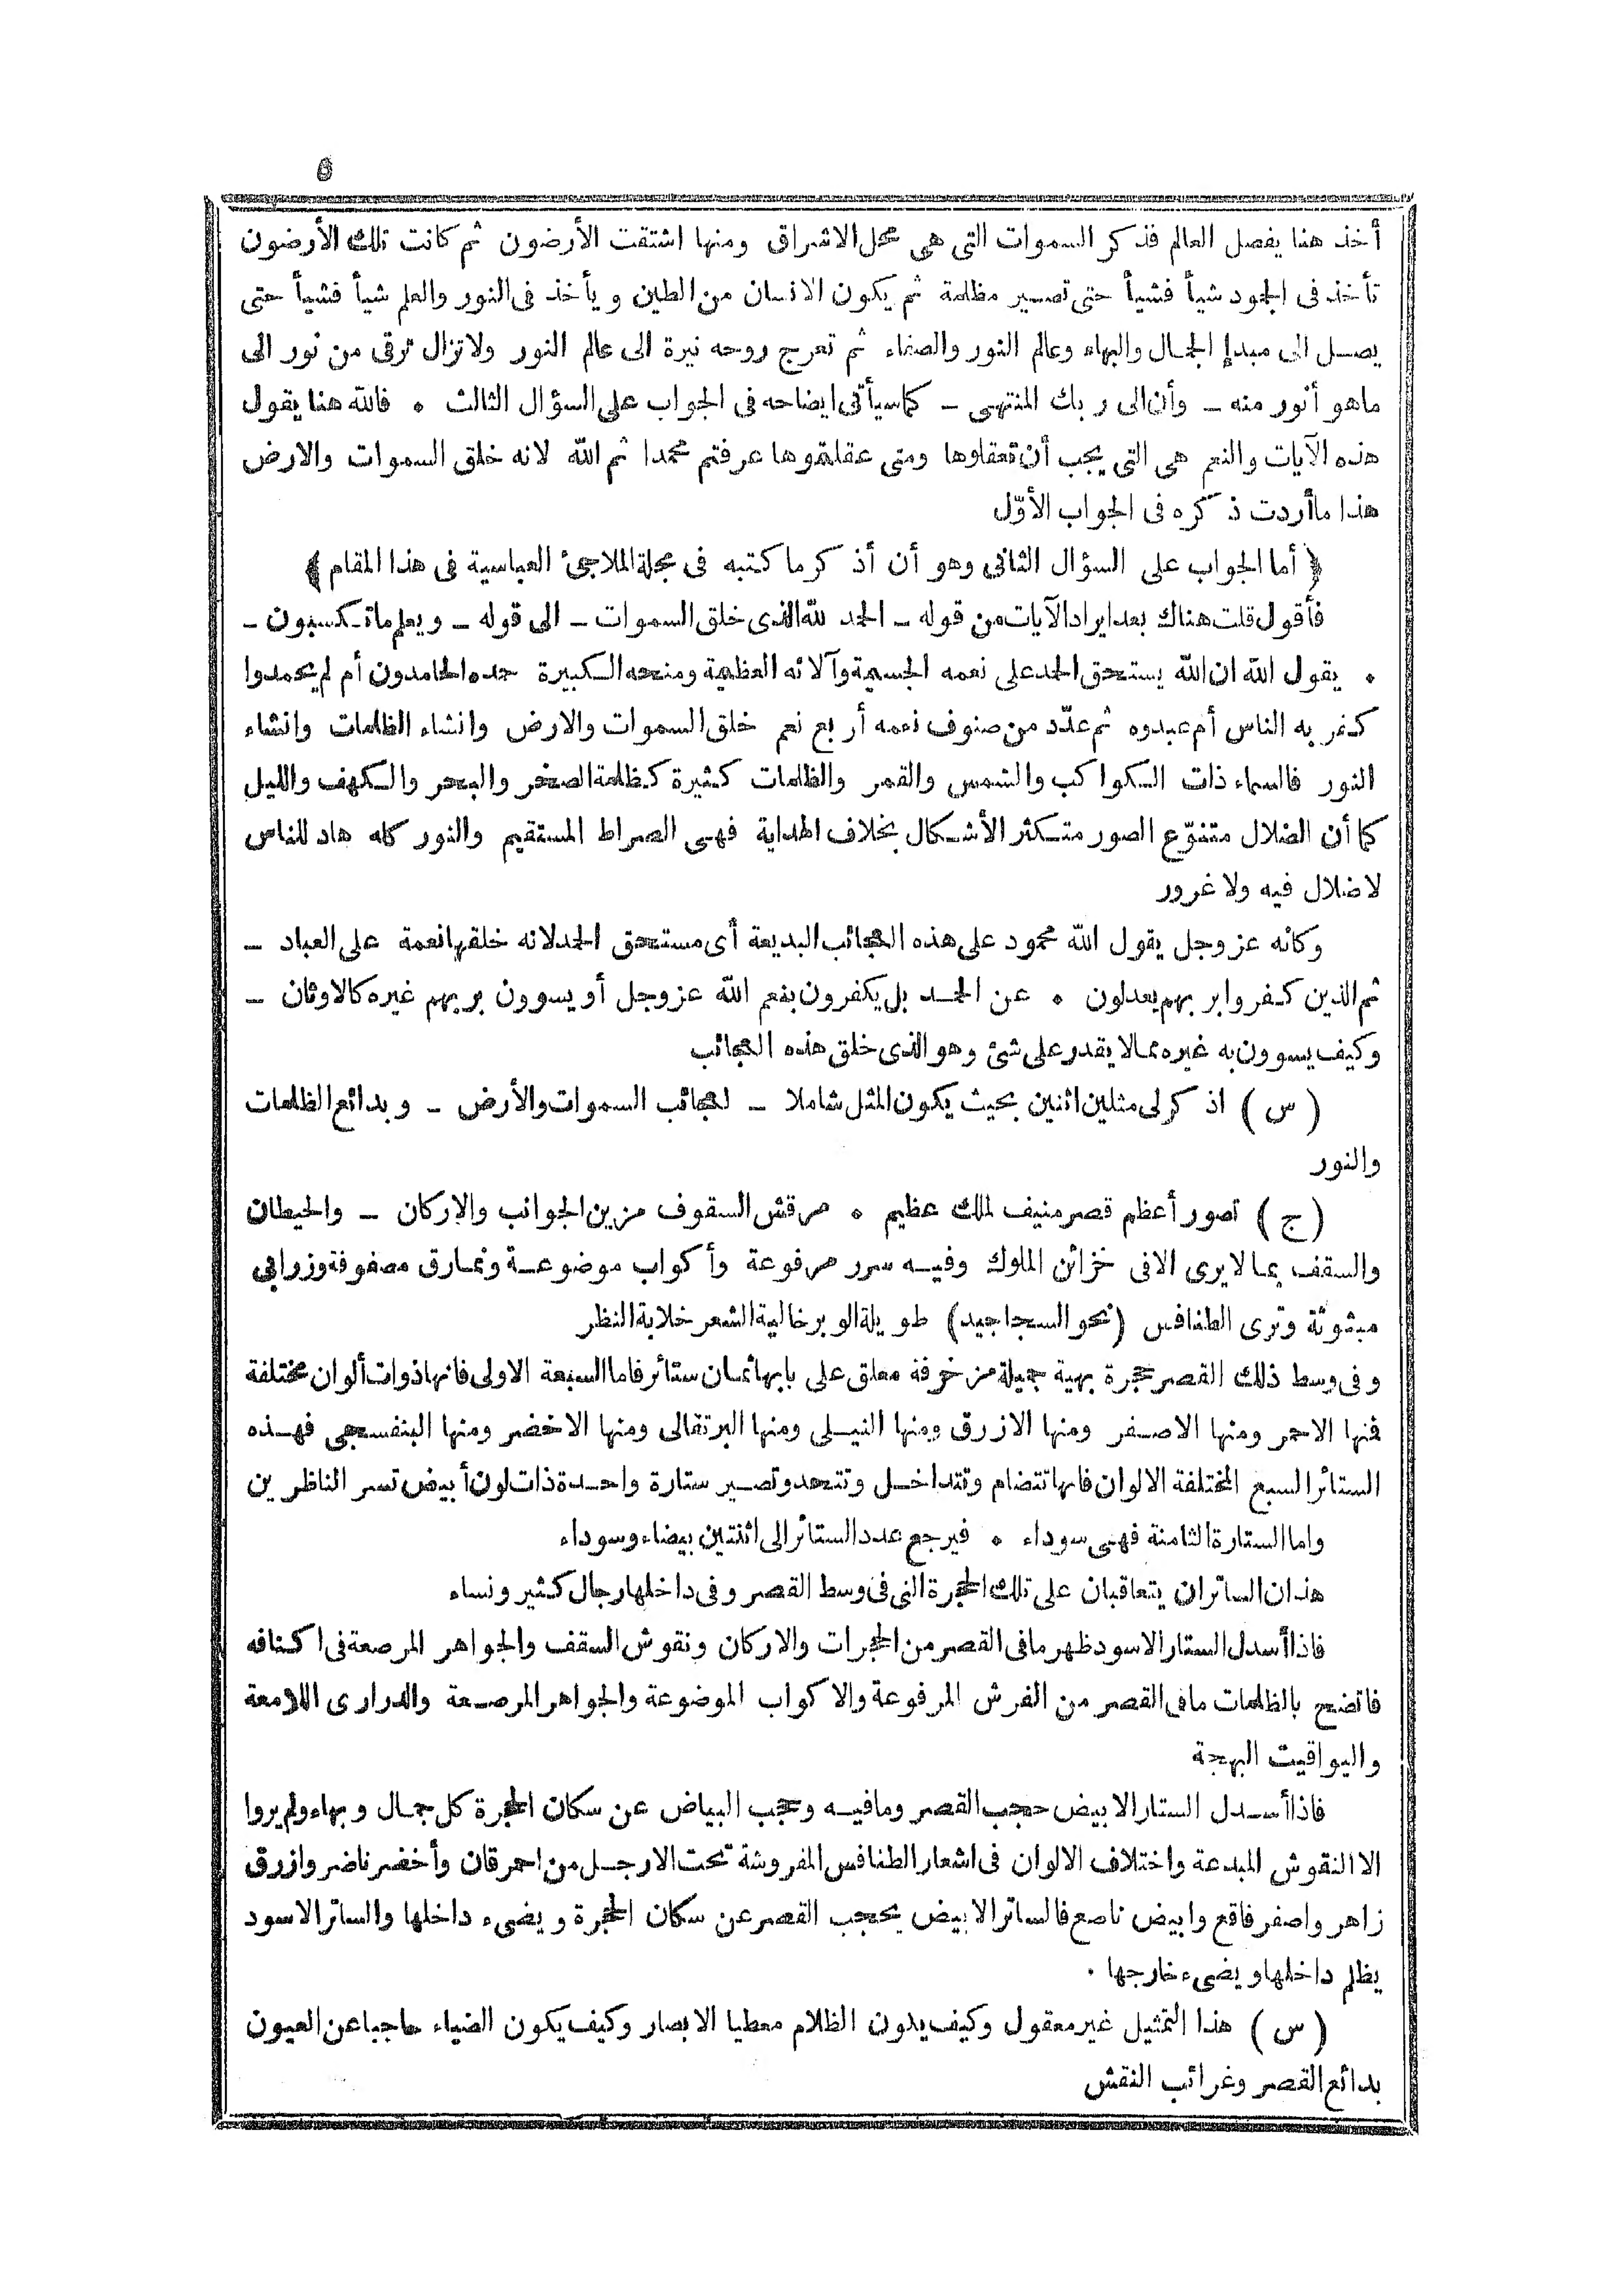 ٥
أخذ هنا يفصل العالم فذكر السموات التى هى محل الاشراق ومنها اشتقت الأرضون ثم كانت تلك الأرضون
تأخذ فى الجود شيأ فشيأ حتى تصير مظلمة ثم يكون الانسان من الطين ويأخذ فى النور والعلم شيأ فشيأ حتى
يصل الى مبدإ الجمال والبهاء وعالم النور والصفاء ثم تعرج روحه نيرة الى عالم النور ولا تزال ترقى من نور الى
ماهو أنور منه ــ وأن الى ربك المنتهى ــ كما سيأتى ايضاحه فى الجواب على السؤال الثالث • فالله هنا يقول
هذه الآيات والنعم هى التى يجب أن تعقلوها ومتى عقلتموها عرفتم محمدا ثم الله لانه خلق السموات والارض
هذا ما أردت ذكره فى الجواب الأوّل
﴿ أما الجواب على السؤال الثانى وهو أن أذكر ما كتبه فى مجلة الملاجئ العباسية فى هذا المقام ﴾
فأقول قلت هناك بعد ايراد الآيات من قوله ــ الحمد لله الذى خلق السموات ــ الى قوله ــ ويعلم ما تكسبون ــ
• يقول الله ان الله يستحق الحمد على نعمه الجسيمة وآلائه العظيمة ومنحه الكبيرة حمده الحامدون أم لم يحمدوا
كفر به الناس أم عبدوه ثم عدّد من صنوف نعمه أربع نعم خلق السموات والارض وانشاء الظلمات وانشاء
النور فالسماء ذات الكواكب والشمس والقمر والظلمات كثيرة كظلمة الصخر والبحر والكهف والليل
كما أن الضلال متنوّع الصور متكثر الأشكال بخلاف الهداية فهى الصراط المستقيم والنور كله هاد للناس
لا ضلال فيه ولا غرور
وكانه عز وجل يقول الله محمود على هذه العجائب البديعة أى مستحق الحمد لانه خلقها نعمة على العباد ــ
ثم الذين كفروا بربهم يعدلون • عن الحمد بل يكفرون بنعم الله عز وجل أو يسوون بربهم غيره كالاوثان ــ
وكيف يسوون به غيره مما لا يقدر على شئ وهو الذى خلق هذه العجائب
( س ) اذكر لى مثلين اثنين بحيث يكون المثل شاملا ــ لعجائب السموات والأرض ــ وبدائع الظلمات
والنور
( ج ) تصور أعظم قصر منيف لملك عظيم • مرقش السقوف مزين الجوانب والاركان ــ والحيطان
والسقف بما لا يرى الا فى خزائن الملوك وفيه سرر مرفوعة وأكواب موضوعة ونمارق مصفوفة وزرابى
مبثوثة وترى الطنافس (نحو السجاجيد) طويلة الوبر خالية الشعر خلابة النظر
وفى وسط ذلك القصر حجرة بهية جميلة مزخرفة معلق على بابها ثمان ستائر فاما السبعة الاولى فانها ذوات ألوان مختلفة
فنها الاحمر ومنها الاصفر ومنها الازرق ومنها النيلى ومنها البرتقالى ومنها الاخضر ومنها البنفسجى فهذه
الستائر السبع المختلفة الالوان فانها تتضام وتتداخل وتتحد وتصير ستارة واحدة ذات لون أبيض تسر الناظرين
واما الستارة الثامنة فهى سوداء • فيرجع عدد الستائر الى اثنتين بيضاء وسوداء
هذان الساتران يتعاقبان على تلك الحجرة التى فى وسط القصر وفى داخلها رجال كثير ونساء
فاذا أسدل الستار الاسود ظهر ما فى القصر من الحجرات والاركان ونقوش السقف والجواهر المرصعة فى اكنافه
فاتضح بالظلمات ما فى القصر من الفرش المرفوعة والاكواب الموضوعة والجواهر المرصعة والدرارى اللامعة
واليواقيت البهجة
فاذا أسدل الستار الابيض حجب القصر وما فيه وحجب البياض عن سكان الحجرة كل جمال وبهاء ولم يروا
الا النقوش المبدعة واختلاف الالوان فى اشعار الطنافس المفروشة تحت الارجل من احمر قان وأخضر ناضر وازرق
زاهر واصفر فاقع وابيض ناصع فالساتر الابيض يحجب القصر عن سكان الحجرة ويضىء داخلها والساتر الاسود
يظلم داخلها ويضىء خارجها •
( س ) هذا التمثيل غير معقول وكيف يكون الظلام معطيا الابصار وكيف يكون الضياء حاجبا عن العيون
بدائع القصر وغرائب النقش